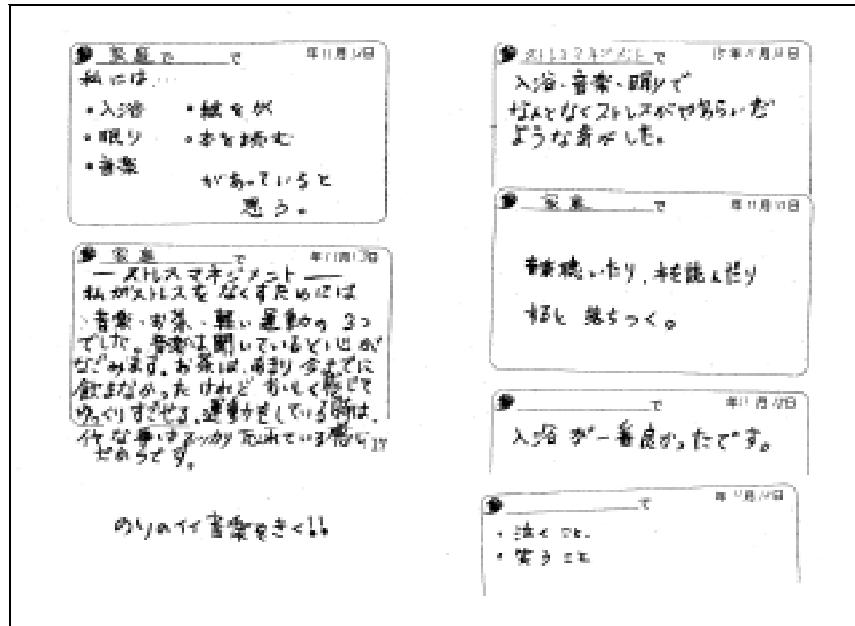 家庭で で 年11月 日
私には…
・入浴 ・絵をかく
・眠り ・本を読む
・音楽
があっていると
思う。
家庭 で 年11月 日
ストレスマネジメント
私がストレスをなくすためには
音楽・お茶・軽い運動の3つ
でした。音楽は聞いていると心が
なごみます。お茶は、あまり今までに
飲まなかったけれど おいしく感じて
ゆっくりすごせる。運動をしている時は、
イヤな事はスッカリ忘れている感じ
だからです。
のりのイイ音楽をきく!!
ストレスマネジメント で 年 月 日
入浴・音楽・眠りで
なんとなくストレスがやわらいだ
ような気がした。
家庭 で 年11月 日
音楽聴いたり、本を読んだり
すると 落ちつく。
で 年11月 日
入浴が一番良かったです。
で 年 月 日
・泣くこと。
・笑うこと